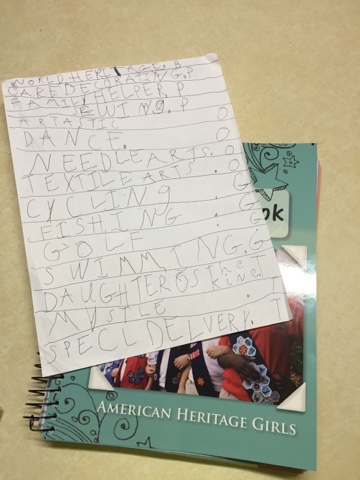 WORLD HERITAGE. B
CAKE DECORATING. P
FAMILY HELPER. P
SEWING. P
ARTASTIC O
DANCE. O
NEEDLE ARTS. O
TEXTILE ARTS . O
CYCLING . G
FISHING . G
GOLF G
SWIMMING. G
DAUGHTER OS the KING. T
MYSTLE . T
SPECL DELIVERY. T
ok
AMERICAN HERITAGE GIRLS